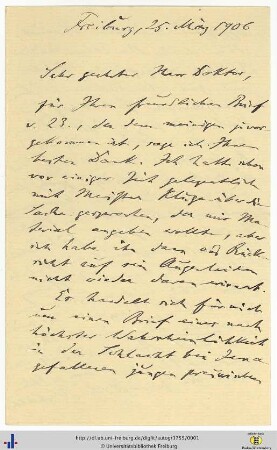 Freiburg, 25. März 1906
Sehr geehrter Herr Doktor,
für Ihren freundlichen Brief
v. 23., der dem meinigen zuvor
gekommen ist, sage ich Ihnen
besten Dank. Ich hatte schon
vor einiger Zeit gelegentlich
mit Kluge über die
Sache gesprochen, der mir Ma-
terial angeben wollte, aber
ich habe ihn dann aus Rück-
sicht auf sein Augenleiden
nicht wieder daran erinnert.
Es handelt sich für mich
um einen Brief eines nach
höchster Wahrscheinlichkeit
in der Schlacht bei Jena
gefallenen jungen preussischen
http://dl.ub.uni-freiburg.de/diglit/autogr1753/0001
© Universitätsbibliothek Freiburg